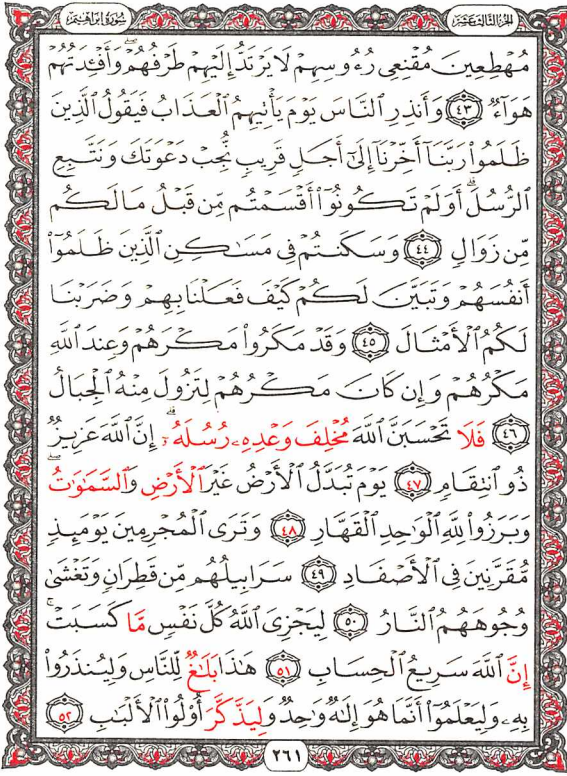 الجزء الثالث عشر سورة إبراهيم
مُهْطِعِينَ مُقْنِعِى رُءُوسِهِمْ لَا يَرْتَدُّ إِلَيْهِمْ طَرْفُهُمْ ۖ وَأَفْـِٔدَتُهُمْ
هَوَآءٌ ٤٣ وَأَنذِرِ ٱلنَّاسَ يَوْمَ يَأْتِيهِمُ ٱلْعَذَابُ فَيَقُولُ ٱلَّذِينَ
ظَلَمُوا۟ رَبَّنَآ أَخِّرْنَآ إِلَىٰٓ أَجَلٍ قَرِيبٍ نُّجِبْ دَعْوَتَكَ وَنَتَّبِعِ
ٱلرُّسُلَ ۗ أَوَلَمْ تَكُونُوٓا۟ أَقْسَمْتُم مِّن قَبْلُ مَا لَكُم
مِّن زَوَالٍ ٤٤ وَسَكَنتُمْ فِى مَسَـٰكِنِ ٱلَّذِينَ ظَلَمُوٓا۟
أَنفُسَهُمْ وَتَبَيَّنَ لَكُمْ كَيْفَ فَعَلْنَا بِهِمْ وَضَرَبْنَا
لَكُمُ ٱلْأَمْثَالَ ٤٥ وَقَدْ مَكَرُوا۟ مَكْرَهُمْ وَعِندَ ٱللَّهِ
مَكْرُهُمْ وَإِن كَانَ مَكْرُهُمْ لِتَزُولَ مِنْهُ ٱلْجِبَالُ
٤٦ فَلَا تَحْسَبَنَّ ٱللَّهَ مُخْلِفَ وَعْدِهِۦ رُسُلَهُۥٓ ۗ إِنَّ ٱللَّهَ عَزِيزٌ
ذُو ٱنتِقَامٍ ٤٧ يَوْمَ تُبَدَّلُ ٱلْأَرْضُ غَيْرَ ٱلْأَرْضِ وَٱلسَّمَـٰوَٰتُ ۖ
وَبَرَزُوا۟ لِلَّهِ ٱلْوَٰحِدِ ٱلْقَهَّارِ ٤٨ وَتَرَى ٱلْمُجْرِمِينَ يَوْمَئِذٍ
مُّقَرَّنِينَ فِى ٱلْأَصْفَادِ ٤٩ سَرَابِيلُهُم مِّن قَطِرَانٍ وَتَغْشَىٰ
وُجُوهَهُمُ ٱلنَّارُ ٥٠ لِيَجْزِىَ ٱللَّهُ كُلَّ نَفْسٍ مَّا كَسَبَتْ ۚ
إِنَّ ٱللَّهَ سَرِيعُ ٱلْحِسَابِ ٥١ هَـٰذَا بَلَـٰغٌ لِّلنَّاسِ وَلِيُنذَرُوا۟
بِهِۦ وَلِيَعْلَمُوٓا۟ أَنَّمَا هُوَ إِلَـٰهٌ وَٰحِدٌ وَلِيَذَّكَّرَ أُو۟لُوا۟ ٱلْأَلْبَـٰبِ ٥٢
٢٦١